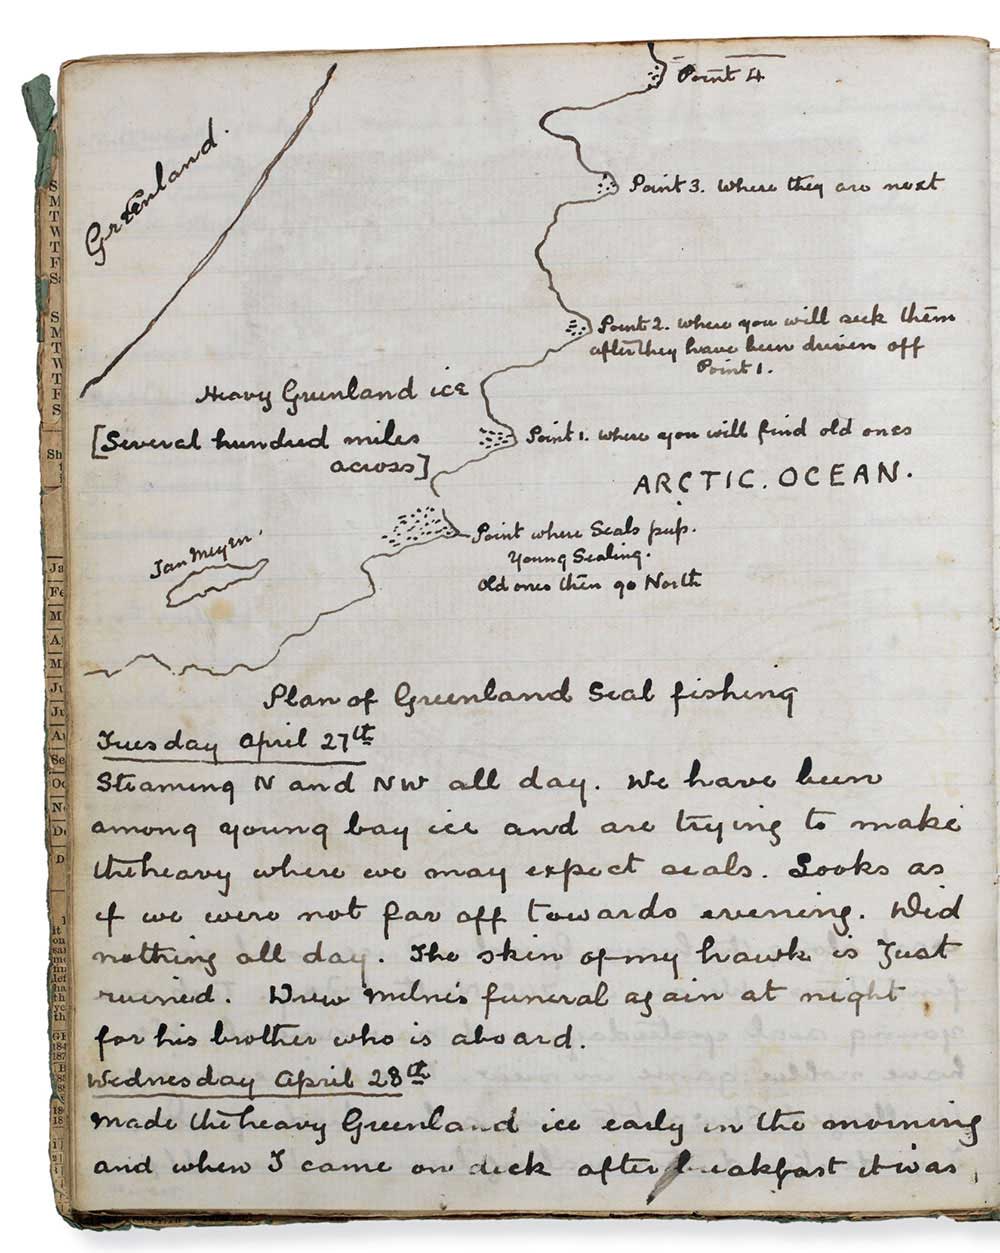 Point 4
Greenland.
Point 3. Where they are next
Point 2. Where you will seek them
after they have been driven off
Point 1.
Heavy Greenland ice
[Several hundred miles
across]
Point 1. Where you will find old ones
ARCTIC. OCEAN.
Jan Meyen
Point where Seals pup.
Young Sealing.
Old ones then go North
Plan of Greenland Seal fishing
Tuesday April 27th
Steaming N and NW all day. We have been
among young bay ice and are trying to make
the heavy where we may expect seals. Looks as
if we were not far off towards evening. Did
nothing all day. The skin of my hawk is Just
ruined. Drew Milne's funeral again at night
for his brother who is aboard.
Wednesday April 28th
Made the heavy Greenland ice early in the morning
and when I came on deck after breakfast it was
S
M
T
W
T
F
S
S
M
T
W
T
F
S
Sh
Ja
Fe
M
A
M
Ju
Ju
Au
Se
Oc
N
De
D